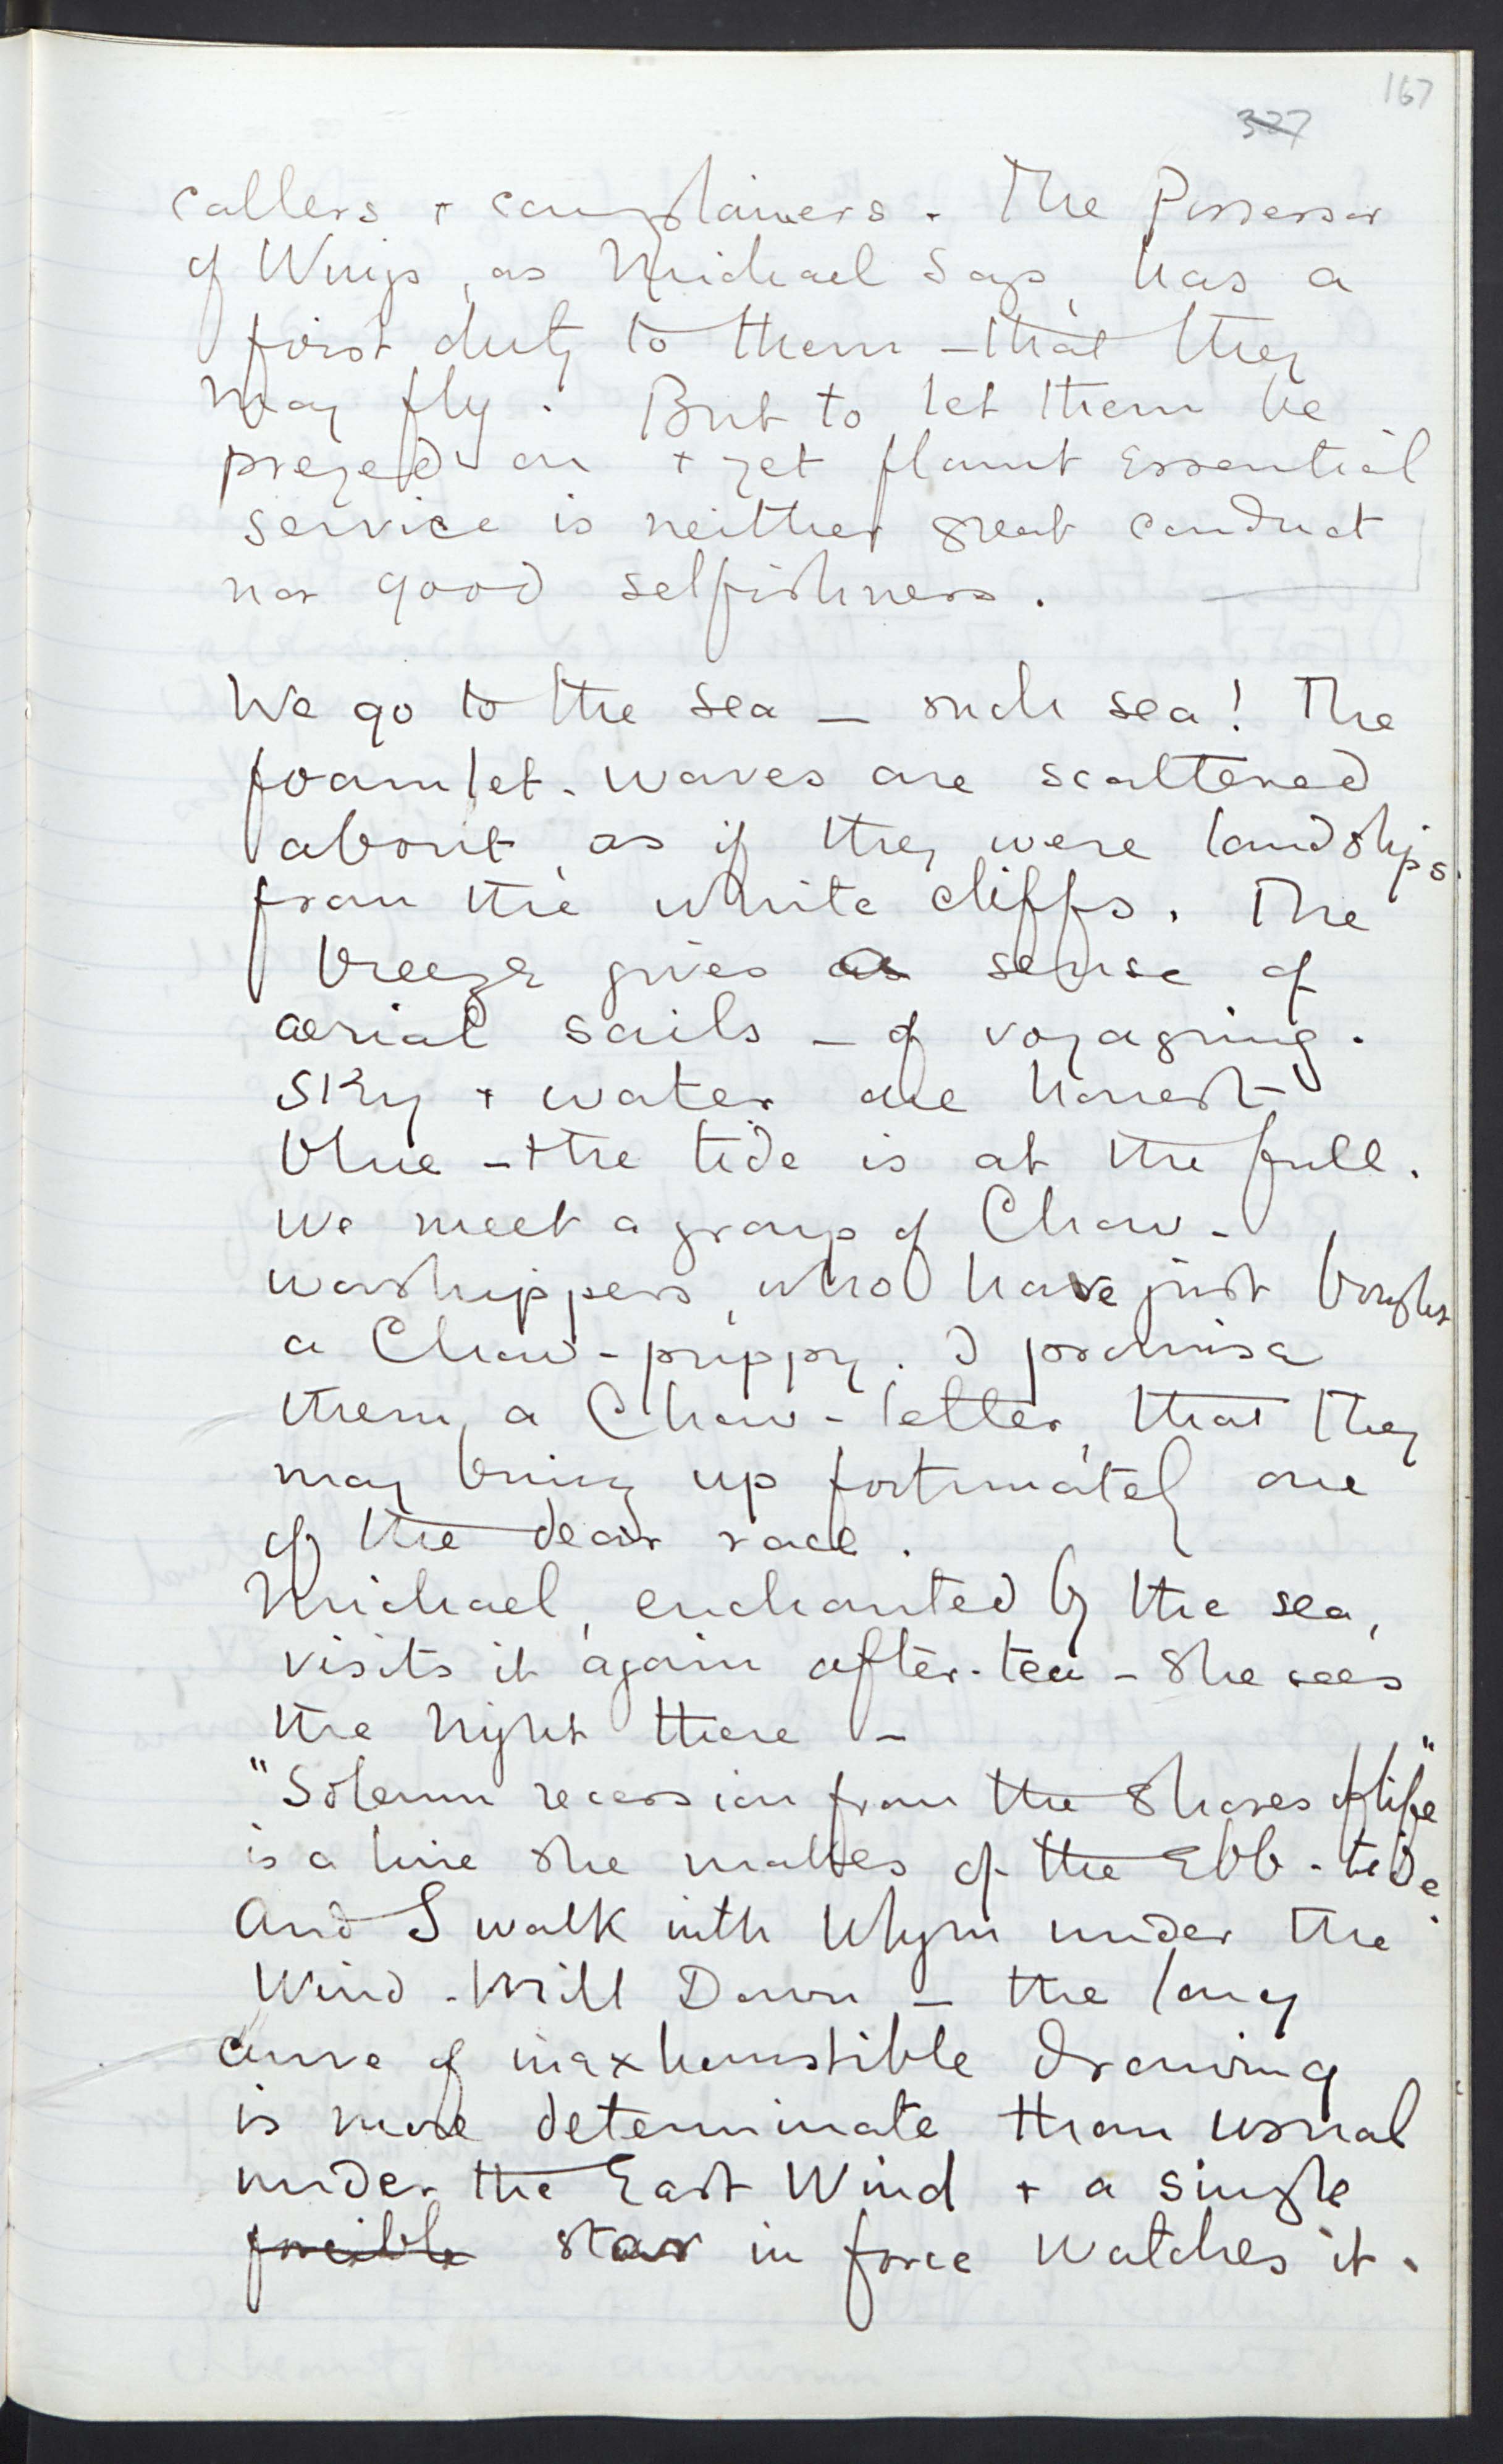 167
327
callers + complainers. The Possessor
of Wings, as Michael says, has a
first duty to them – that they
may fly. But to let them be
preyed on + yet flaunt essential
service is neither great conduct
nor good selfishness.
We go to the sea – such sea! The
foamlet-waves are scattered
about, as if they were landslips
from the white cliffs. The
breeze gives a sense of
aerial sails – of voyaging.
Sky + water are honest
blue – the tide is at the full.
We meet a group of Chow-
worshippers, who have just bought
a Chow-puppy. I promise
them, a Chow-letter, that they
may bring up fortunately one
of the dear race.
Michael, enchanted by the sea,
visits it again after-tea – she sees
the Night there –
"Solemn recession from the shores of life"
is a line she makes of the Ebb-tide.
And I walk with Whym under the
Wind-Mill Down – the long
curve of inexhaustible drawing
is more determinate than usual
under the East Wind + a single
forcible star in force watches it.